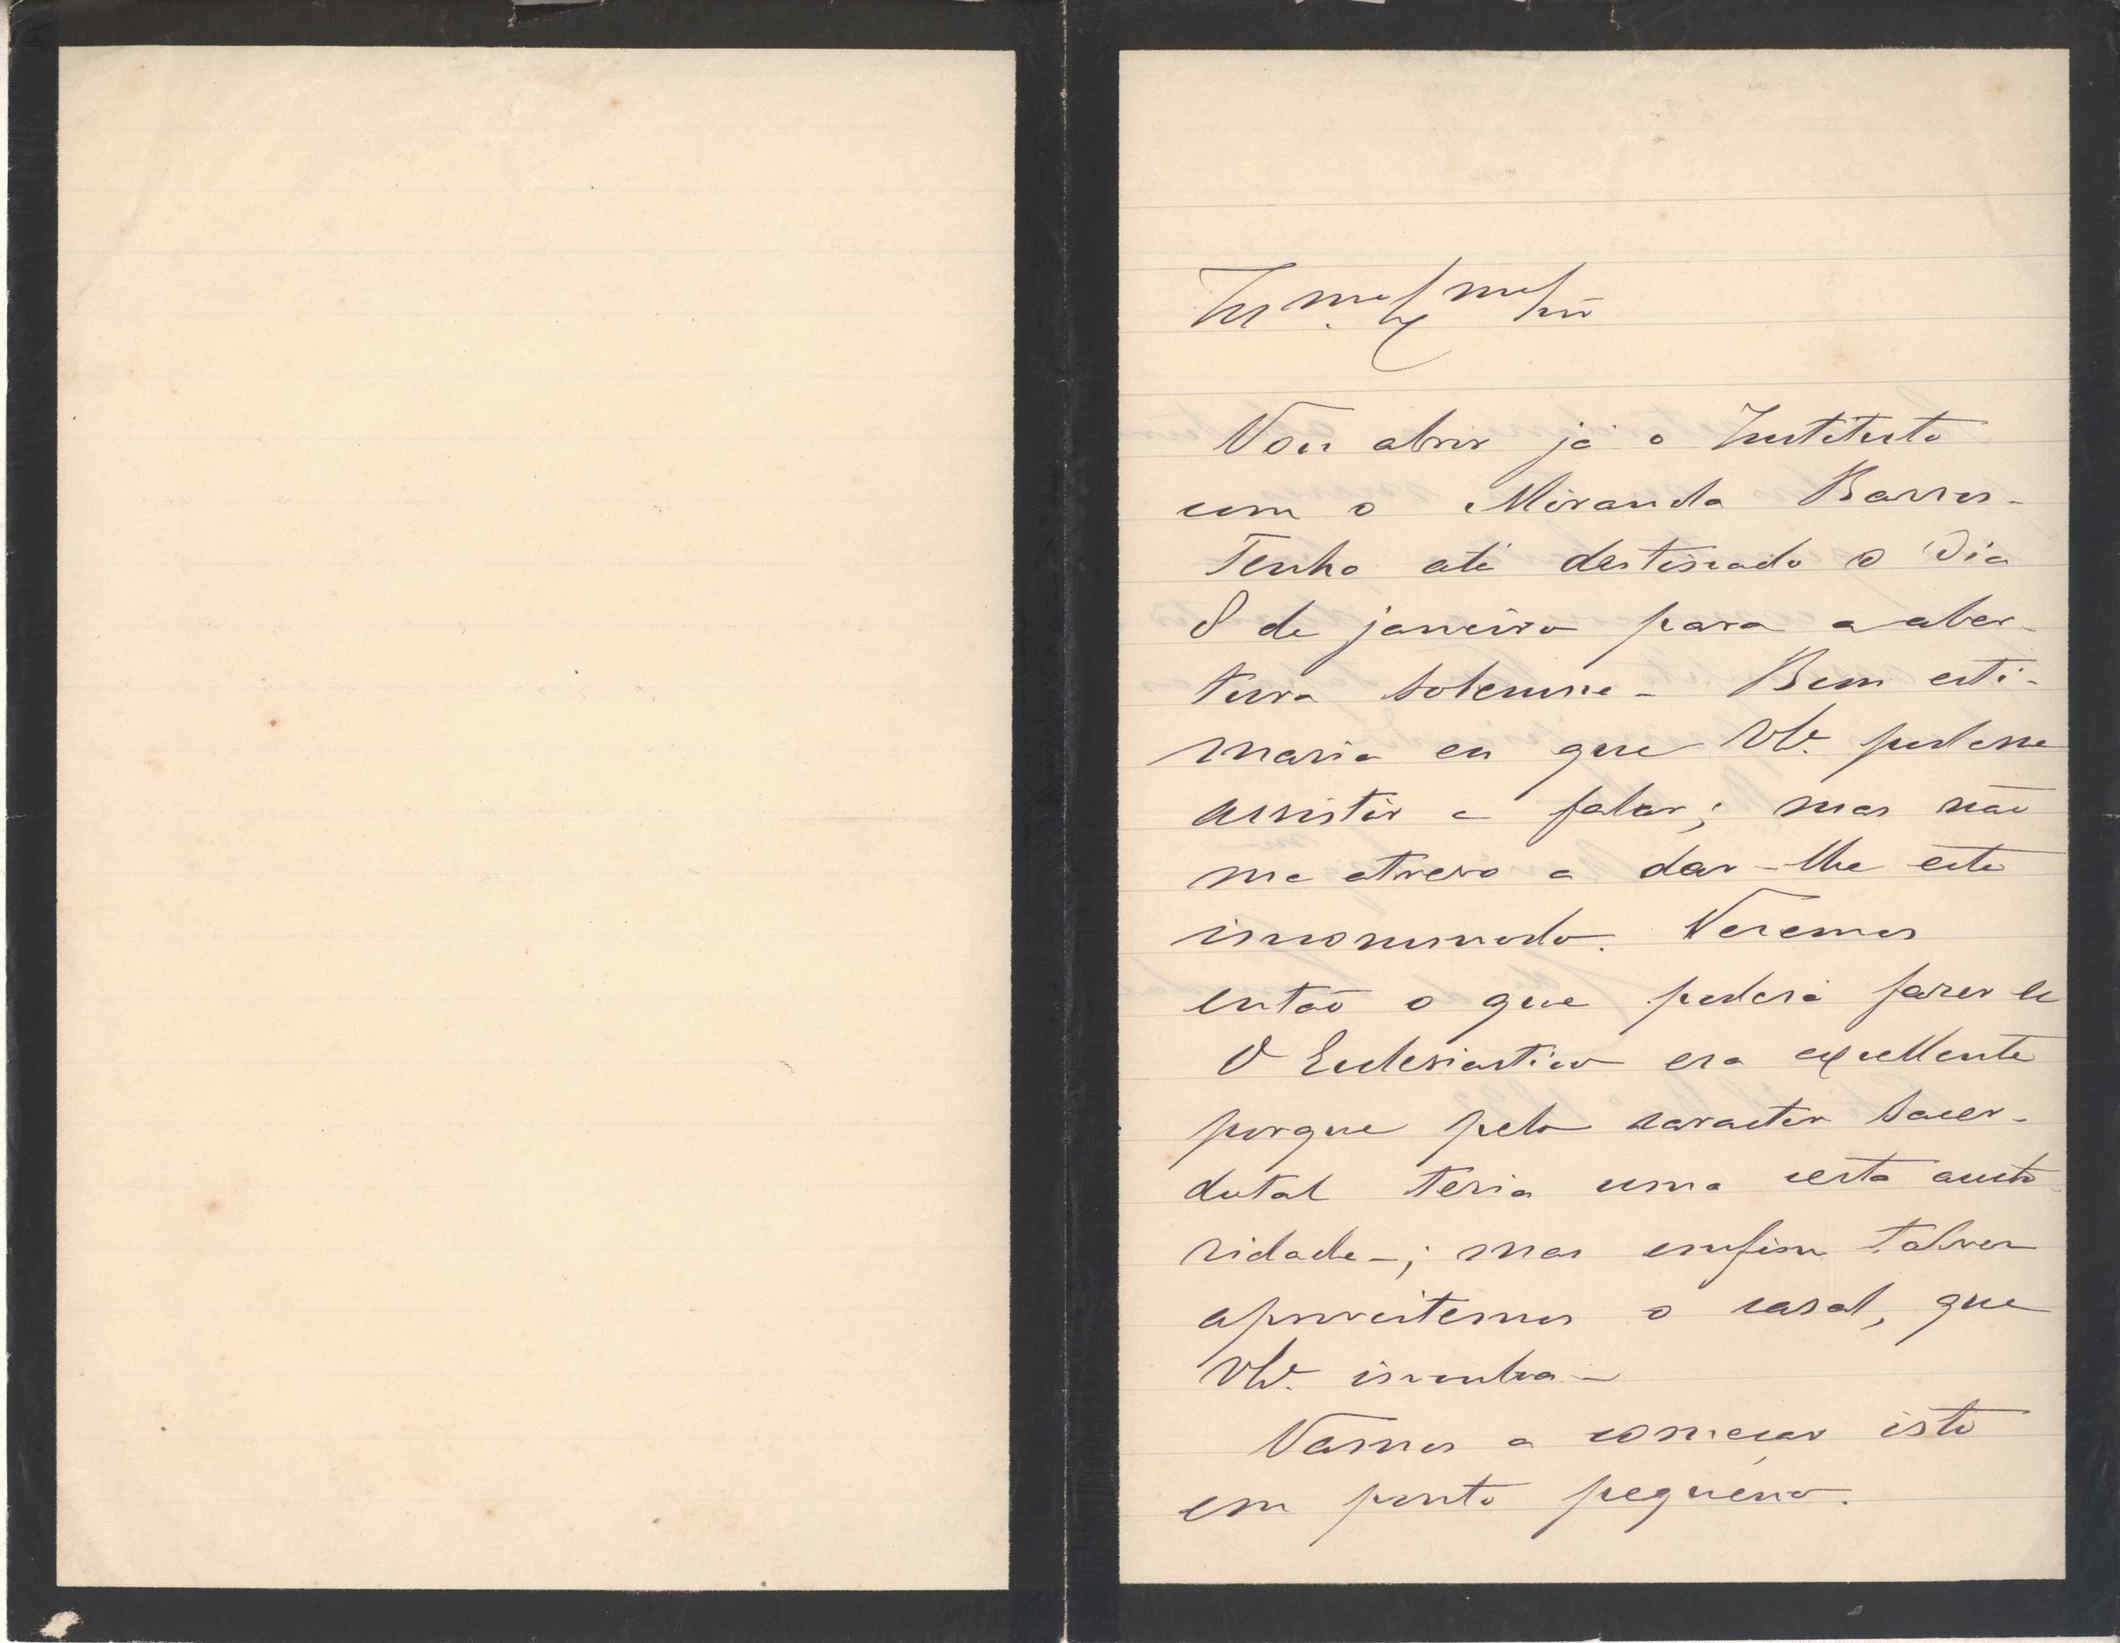 Ill.mo Ex.mo Snr
Vou abrir já o Instituto
com o Miranda Barros -
Tenho até destinado o dia
8 de janeiro para a aber-
tura solemne - Bem esti-
maria eu que VEx. podesse
assistir e falar; mas não
me atrevo a dar-lhe este
incommodo. Veremos
então o que poderá fazer se
O Ecclesiastico era excellente
porque pelo caracter sacer-
dotal teria uma certa aucto-
ridade -; mas emfim talvez
aproveitemos o casal, que
VEx. inculca -
Vamos a começar isto
em ponto pequeno.